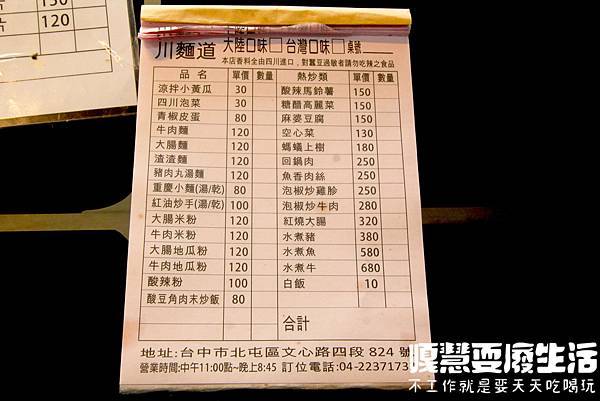 片 120
130
川麵道 大陸口味 台灣口味 桌號
本店香料全由四川進口，對蠶豆過敏者請勿吃辣之食品
品名 單價 數量 熱炒類 單價 數量
涼拌小黃瓜 30 酸辣馬鈴薯 150
四川泡菜 30 糖醋高麗菜 150
青椒皮蛋 80 麻婆豆腐 150
牛肉麵 120 空心菜 130
大腸麵 120 螞蟻上樹 180
渣渣麵 120 回鍋肉 250
豬肉丸湯麵 120 魚香肉絲 250
重慶小麵(湯/乾) 80 泡椒炒雞胗 250
紅油炒手(湯/乾) 100 泡椒炒牛肉 280
大腸米粉 120 紅燒大腸 320
牛肉米粉 120 水煮豬 380
大腸地瓜粉 120 水煮魚 580
牛肉地瓜粉 120 水煮牛 680
酸辣粉 100 白飯 10
酸豆角肉末炒飯 80
合計
地址:台中市北屯區文心路四段 824 號
營業時間:中午11:00點~晚上8:45 訂位電話:04-2237173
嘎慧耍廢生活
不工作就是要天天吃喝玩